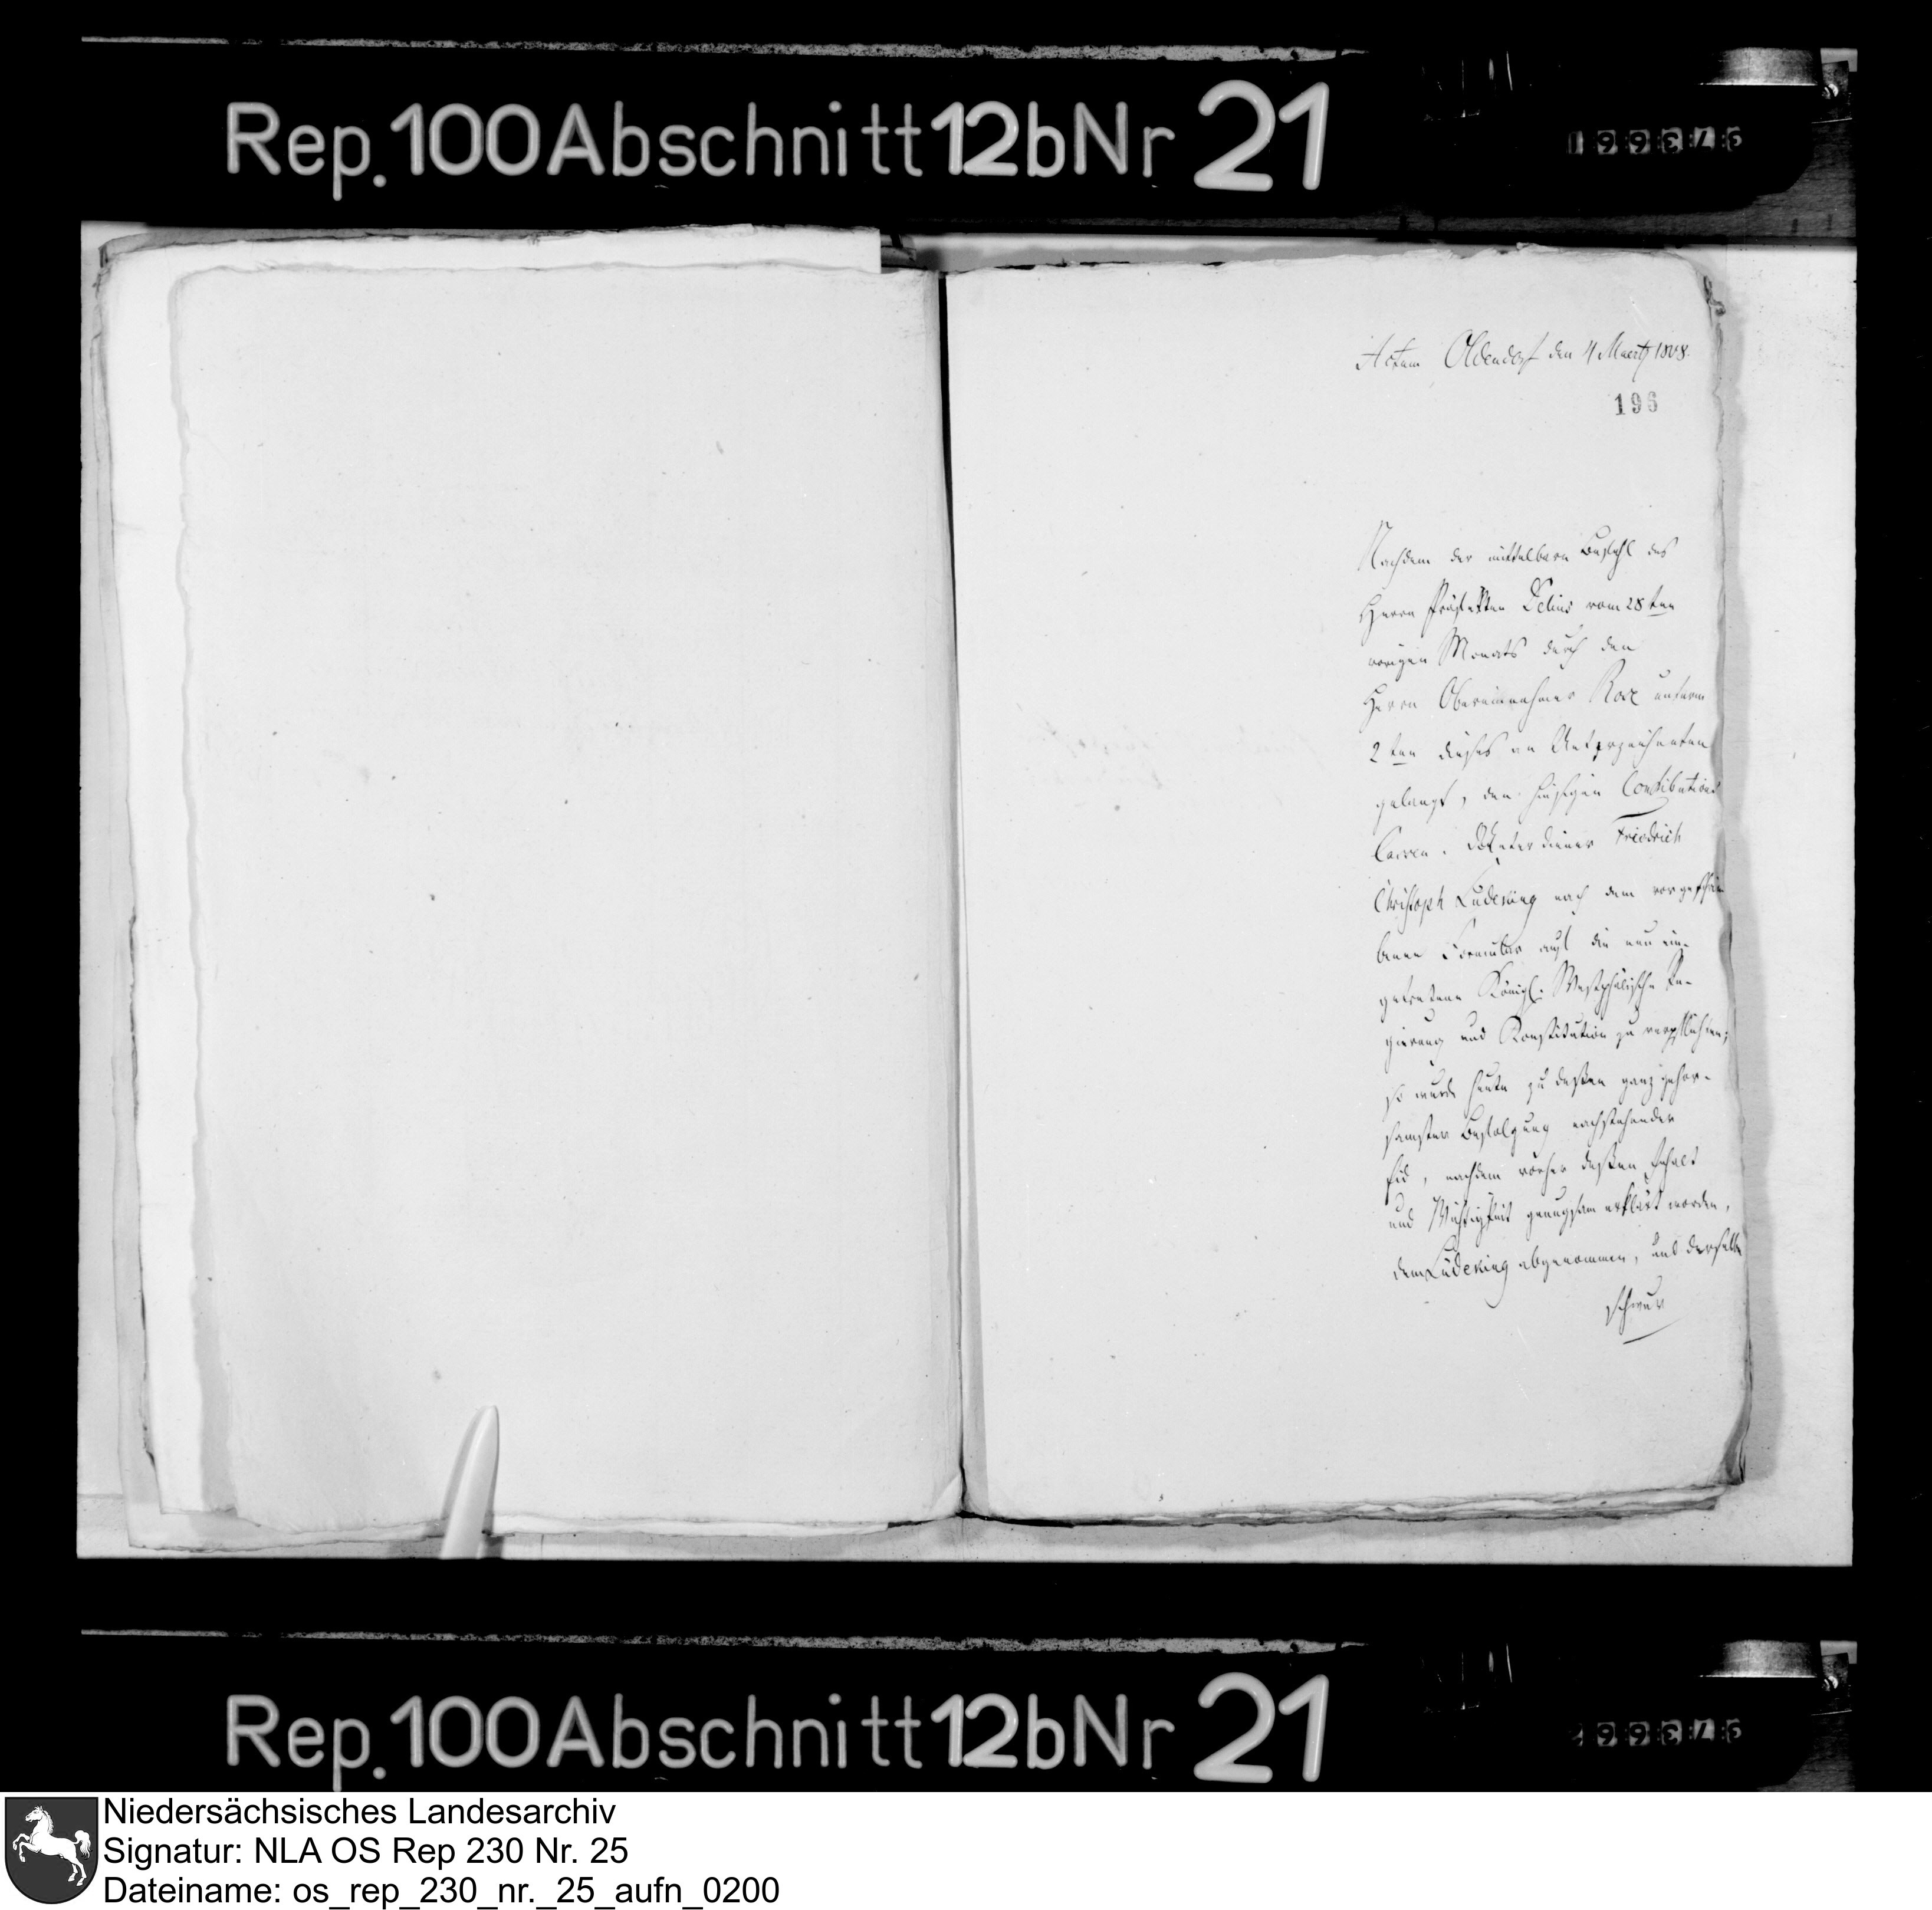 Rep. 100 Abschnitt 12b Nr 21
Actum Oldendorf den 4 Maertz 1808.
196
Nachdem der mittelbare Befehl des
Herrn Präfekten Delius vom 28ten
vorigen Monats durch den
Herrn Obereinnehmer unterm
2ten dieses an Unterzeichneten
gelangt, den hiesigen Contributions
Cassen. diener Friedrich
Christoph Lüdeking nach dem vorgeschrie
benen Formular auf die neu ein-
getretene Königl. Westphälische Re-
gierung und Konstitution zu verpflichten;
so wurde heute zu dessen ganz gehor-
samster Befolgung nachstehender
Eid, nachdem vorher dessen Inhalt
und Wichtigkeit genugsam erklärt worden,
dem Lüdeking abgenommen, und derselbe
schwur
Rep. 100 Abschnitt 12b Nr 21
Niedersächsisches Landesarchiv
Signatur: NLA OS Rep 230 Nr. 25
Dateiname: os_rep_230_nr._25_aufn_0200